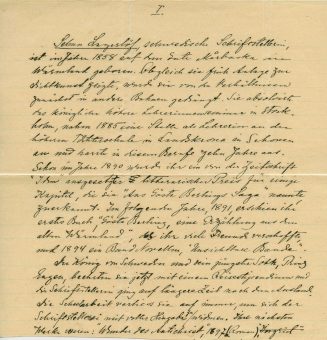 I.
Selma Lagerlöf, schwedische Schriftstellerin,
ist im Jahre 1858 auf dem Gute Mårbacka in
Wärmland geboren. Obgleich sie früh Anlage zur
Dichtkunst zeigte, wurde sie von den Verhältnissen
zunächst in andere Bahnen gedrängt. Sie absolvierte
das königliche höhere Lehrerinnenseminar in Stock-
holm, nahm 1885 eine Stelle als Lehrerin an der
höheren Töchterschule in Landskrona in Schonen
an und harrte in diesem Berufe zehn Jahre aus.
Schon im Jahre 1890 wurde ihr ein von der Zeitschrift
"Idun" ausgesetzter litterarischer Preis für einige
Kapitel, die in "Gösta Berlings Saga"
zuerkannt. Im folgenden Jahre, 1891, erschien ihr
erstes Buch "Gösta Berling, eine Erzählung aus dem
alten Wärmland", das ihr viele Freunde verschaffte,
und 1894 ein Band Novellen, "Unsichtbare Bande".
Der König von Schweden und sein jüngster Sohn, Prinz
Eugen, bedachten sie jetzt mit einem Reisestipendium und
die Schriftstellerin ging auf längere Zeit nach dem Ausland.
Die Schularbeit verliess sie auf immer, um sich der
Schriftstellerei mit voller Hingabe zu widmen. Ihre nächsten
Werke waren: "Wunder des Antichrist", 1897 (Roman)